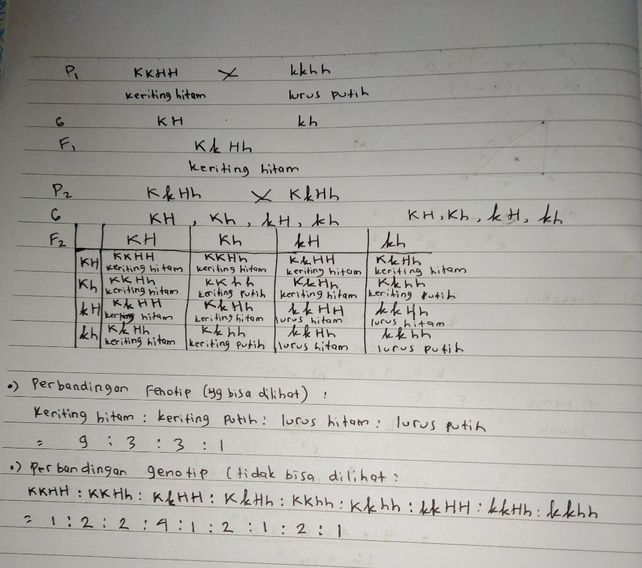 P1 KKHH X kkhh
keriting hitam lurus putih
G KH kh
F1 KkHh
keriting hitam
P2 KkHh X KkHh
G KH, Kh, kH, kh KH, Kh, kH, kh
F2 KH Kh kH kh
KH KKHH KKHh KkHH KkHh
keriting hitam keriting hitam keriting hitam keriting hitam
Kh KKHh KKhh KkHh Kkhh
keriting hitam keriting putih keriting hitam keriting putih
kH KkHH KkHh kkHH kkHh
keriting hitam keriting hitam lurus hitam lurus hitam
kh KkHh Kkhh kkHh kkhh
keriting hitam keriting putih lurus hitam lurus putih
•) Perbandingan Fenotip (yg bisa dilihat) :
Keriting hitam : keriting putih : lurus hitam : lurus putih
= 9 : 3 : 3 : 1
•) Perbandingan genotip (tidak bisa dilihat :
KKHH : KKHh : KkHH : KkHh : KKhh : Kkhh : kkHH : kkHh : kkhh
= 1 : 2 : 2 : 4 : 1 : 2 : 1 : 2 : 1